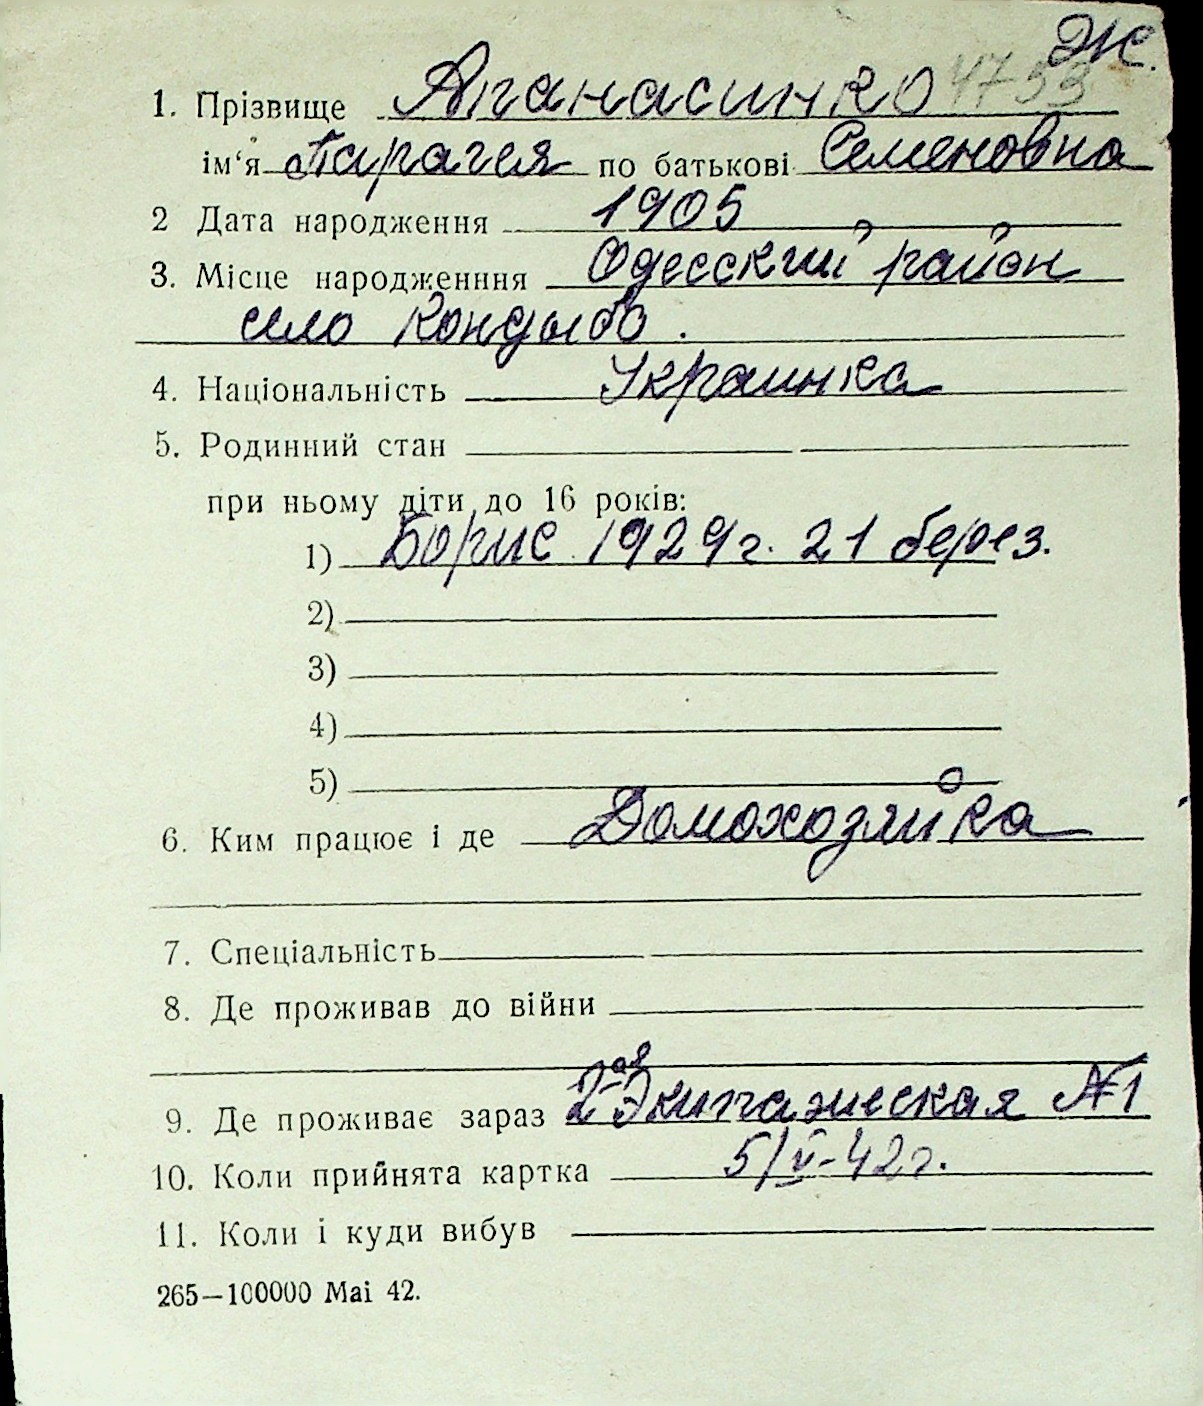 Ж.
1. Прізвище Апанасинко 4753
ім'я Парагея по батькові Семеновна
2 Дата народження 1905
3. Місце народженння Одесский район
село Кондыбо.
4. Національність Украинка
5. Родинний стан
при ньому діти до 16 років:
1) Борис 1929г. 21 берез.
2)
3)
4)
5)
6. Ким працює і де Домохозяйка
7. Спеціальність
8. Де проживав до війни
9. Де проживає зараз 2ая Экипажеская №1
10. Коли прийнята картка 5/V-42г.
11. Коли і куди вибув
265—100000 Mai 42.